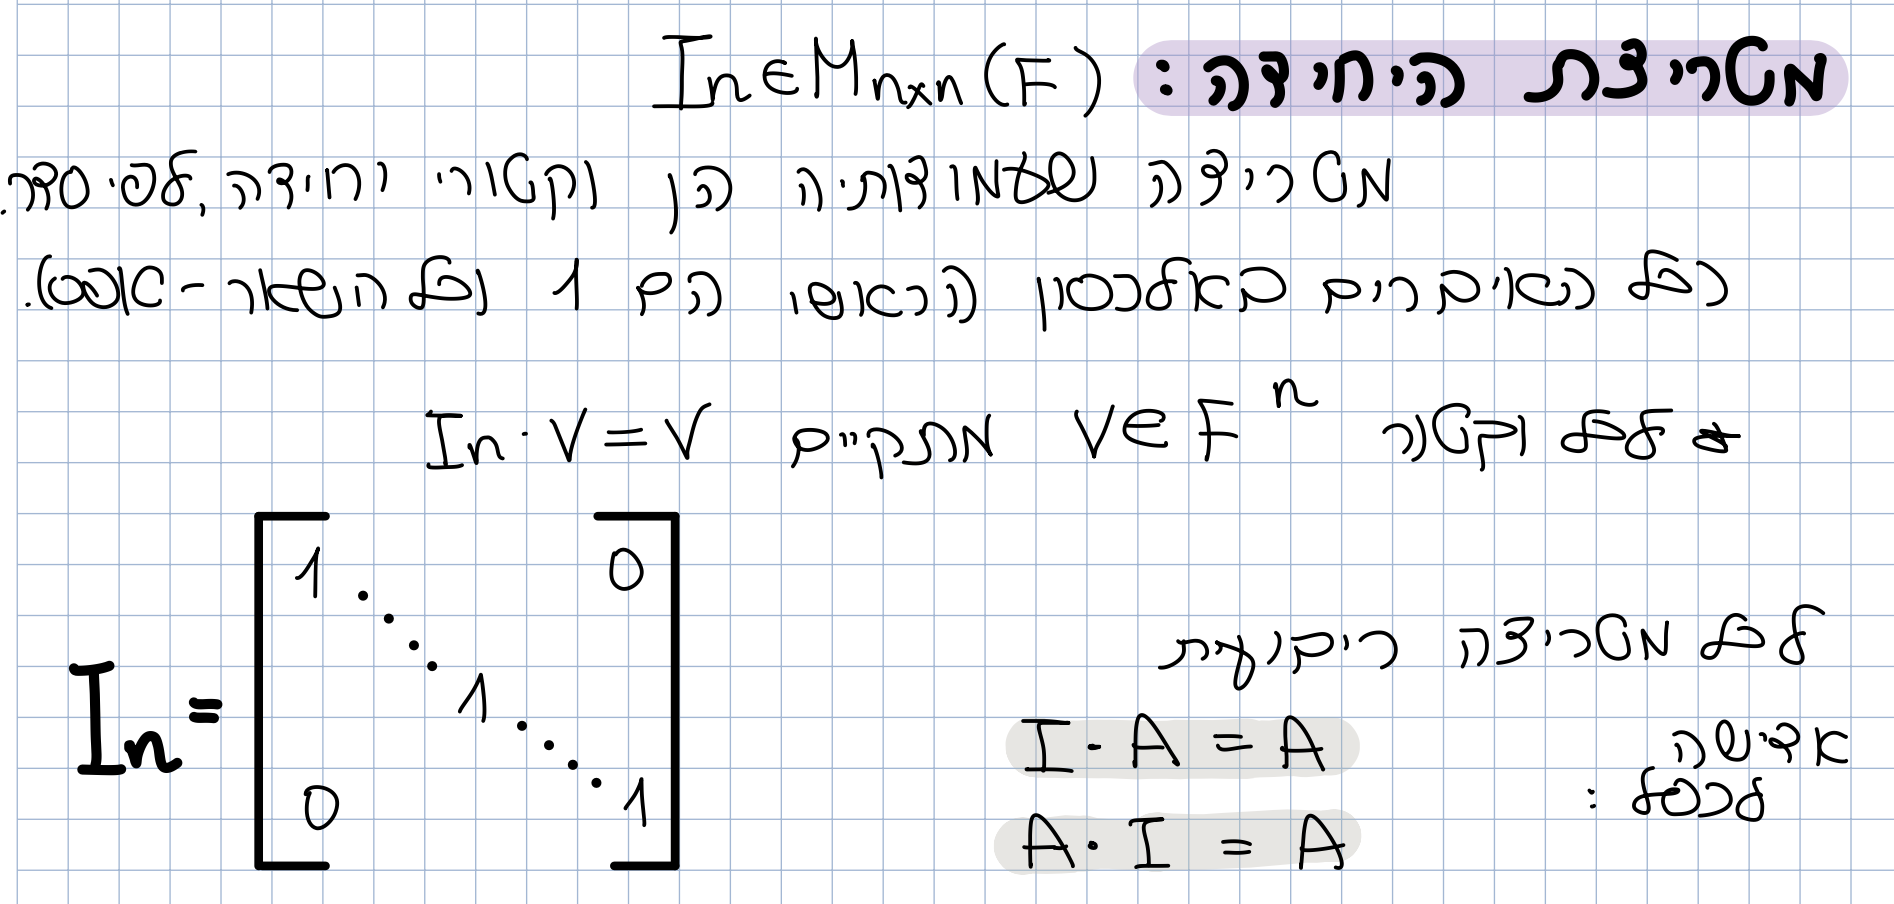 מטריצת היחידה: In∈Mnxn(F)
מטריצה שעמודותיה הן וקטורי יחידה, לפי סדר.
(כל האיברים באלכסון הראשי הם 1 וכל השאר - אפס).
* לכל וקטור V∈F^n מתקיים In·V=V
In = [1 0 1 0 1]
לכל מטריצה ריבועית
אדישה
לכפל:
I·A=A
A·I=A